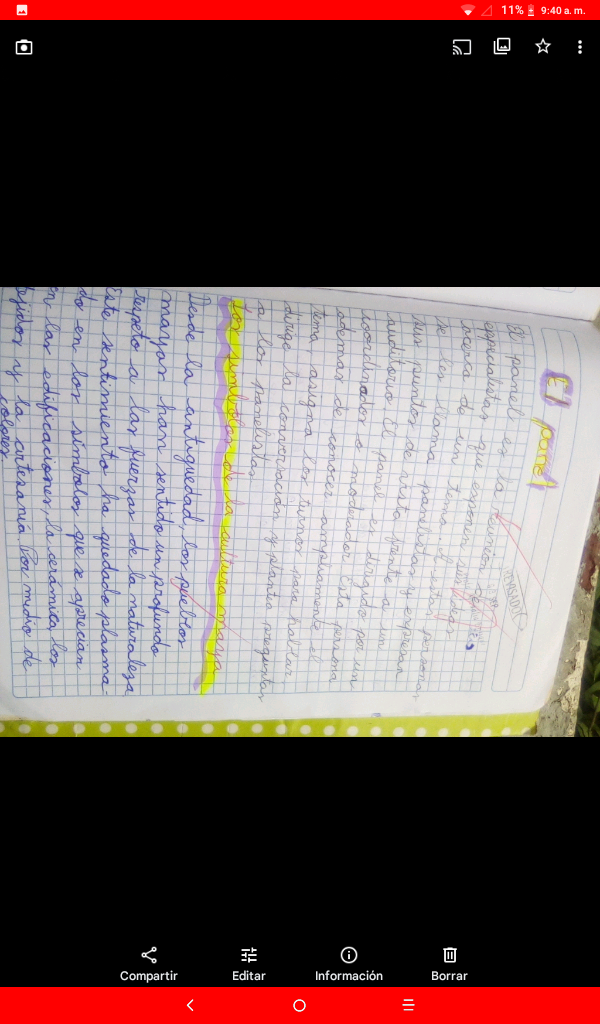 11% 9:40 a. m.
El panel
El panel es la reunión de
especialistas que exponen sus ideas
acerca de un tema. A estas personas
se les llama panelistas y expresan
sus puntos de vista frente a un
auditorio. El panel es dirigido por un
coordinador o moderador. Esta persona
ademas de conocer ampliamente el
tema asigna los turnos para hablar
dirige la conversación y plantea preguntas
a los panelistas.
Los símbolos de la cultura maya
Desde la antiguedad, los pueblos
mayas han sentido un profundo
respeto a las fuerzas de la naturaleza
Este sentimiento ha quedado plasma-
do en los símbolos que se aprecian
en las edificaciones, la cerámica los
tejidos y la artesanía Por medio de
colores
Compartir
Editar
Información
Borrar